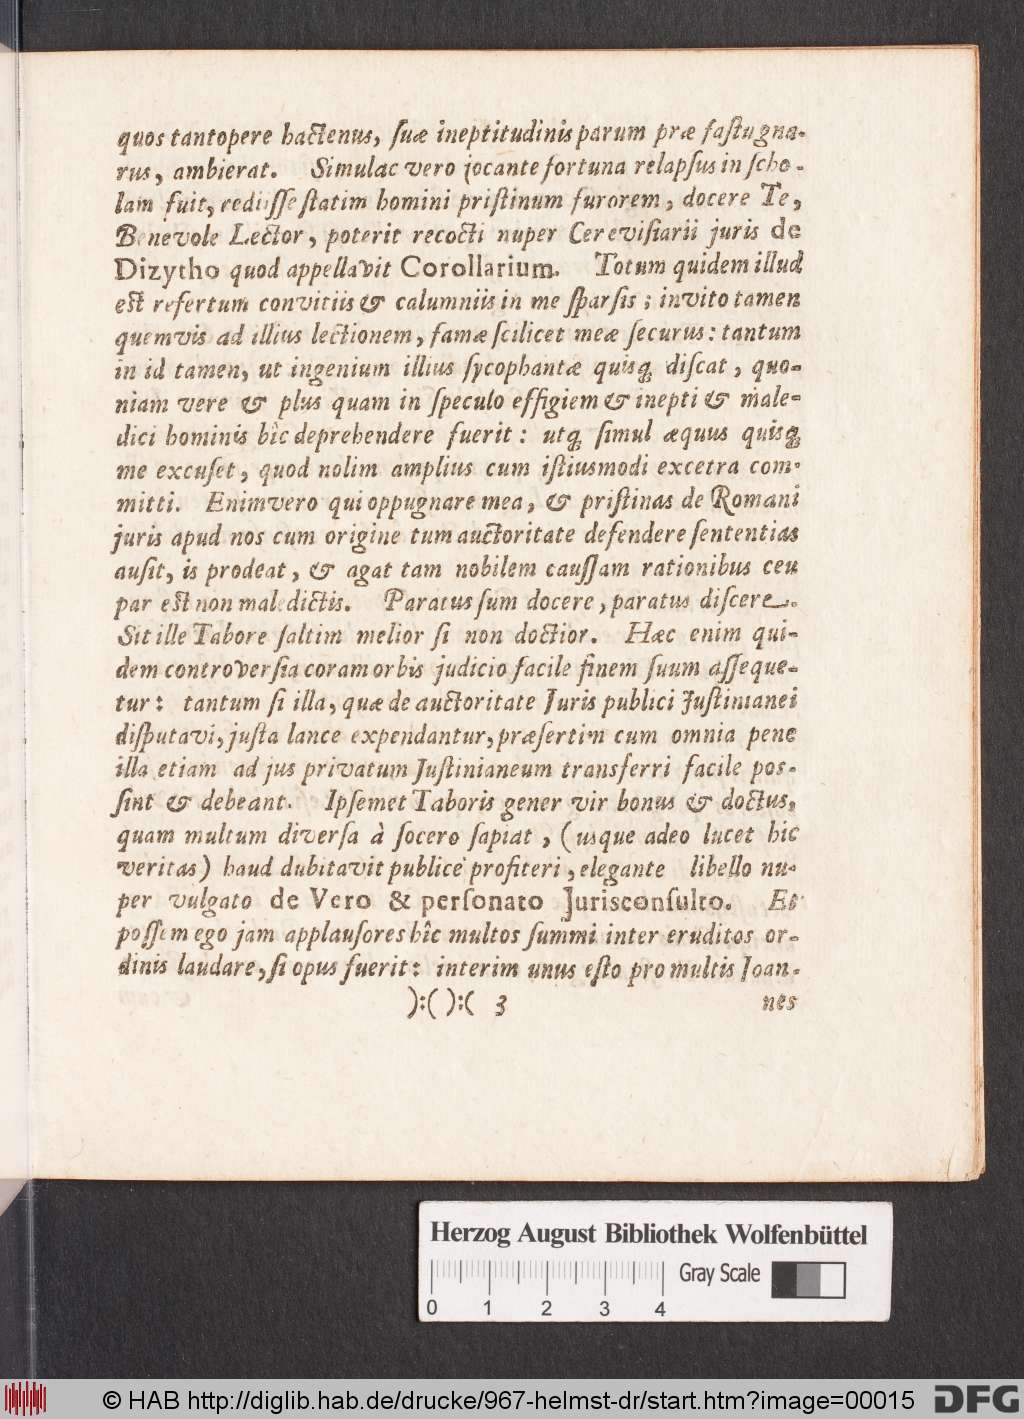 quos tantopere hactenus, ſuæ ineptitudinis parum præ faſtu gna-
rus, ambierat. Simulac vero jocante fortuna relapſus in ſcho-
lam fuit, rediiſſe ſtatim homini priſtinum furorem, docere Te,
Benevole Lector, poterit recocti nuper Cereviſiarii juris de
Dizytho quod appellavit Corollarium. Totum quidem illud
eſt refertum convitiis & calumniis in me ſparſis; invito tamen
quemvis ad illius lectionem, famæ ſcilicet meæ ſecurus: tantum
in id tamen, ut ingenium illius ſycophantæ quisq; diſcat, quo-
niam vere & plus quam in ſpeculo effigiem & inepti & male-
dici hominis hîc deprehendere fuerit: utq; ſimul æquus quisq;
me excuſet, quod nolim amplius cum iſtiusmodi excetra com-
mitti. Enimvero qui oppugnare mea, & priſtinas de Romani
juris apud nos cum origine tum auctoritate defendere ſententias
auſit, is prodeat, & agat tam nobilem cauſſam rationibus ceu
par eſt non maledictis. Paratus ſum docere, paratus diſcere.
Sit ille Tabore ſaltim melior ſi non doctior. Hæc enim qui-
dem controverſia coram orbis judicio facile finem ſuum aſſeque-
tur: tantum ſi illa, quæ de auctoritate Juris publici Juſtinianei
diſputavi, juſta lance expendantur, præſertim cum omnia pene
illa etiam ad jus privatum Juſtinianeum transferri facile poſ-
ſint & debeant. Ipſemet Taboris gener vir bonus & doctus,
quam multum diverſa à ſocero ſapiat, (usque adeo lucet hic
veritas) haud dubitavit publicè profiteri, elegante libello nu-
per vulgato de Vero & perſonato Jurisconſulto. Et
poſſem ego jam applauſores hîc multos ſummi inter eruditos or-
dinis laudare, ſi opus fuerit: interim unus eſto pro multis Joan-
):( ):( 3 nes
Herzog August Bibliothek Wolfenbüttel
Gray Scale
0 1 2 3 4
© HAB http://diglib.hab.de/drucke/967-helmst-dr/start.htm?image=00015 DFG